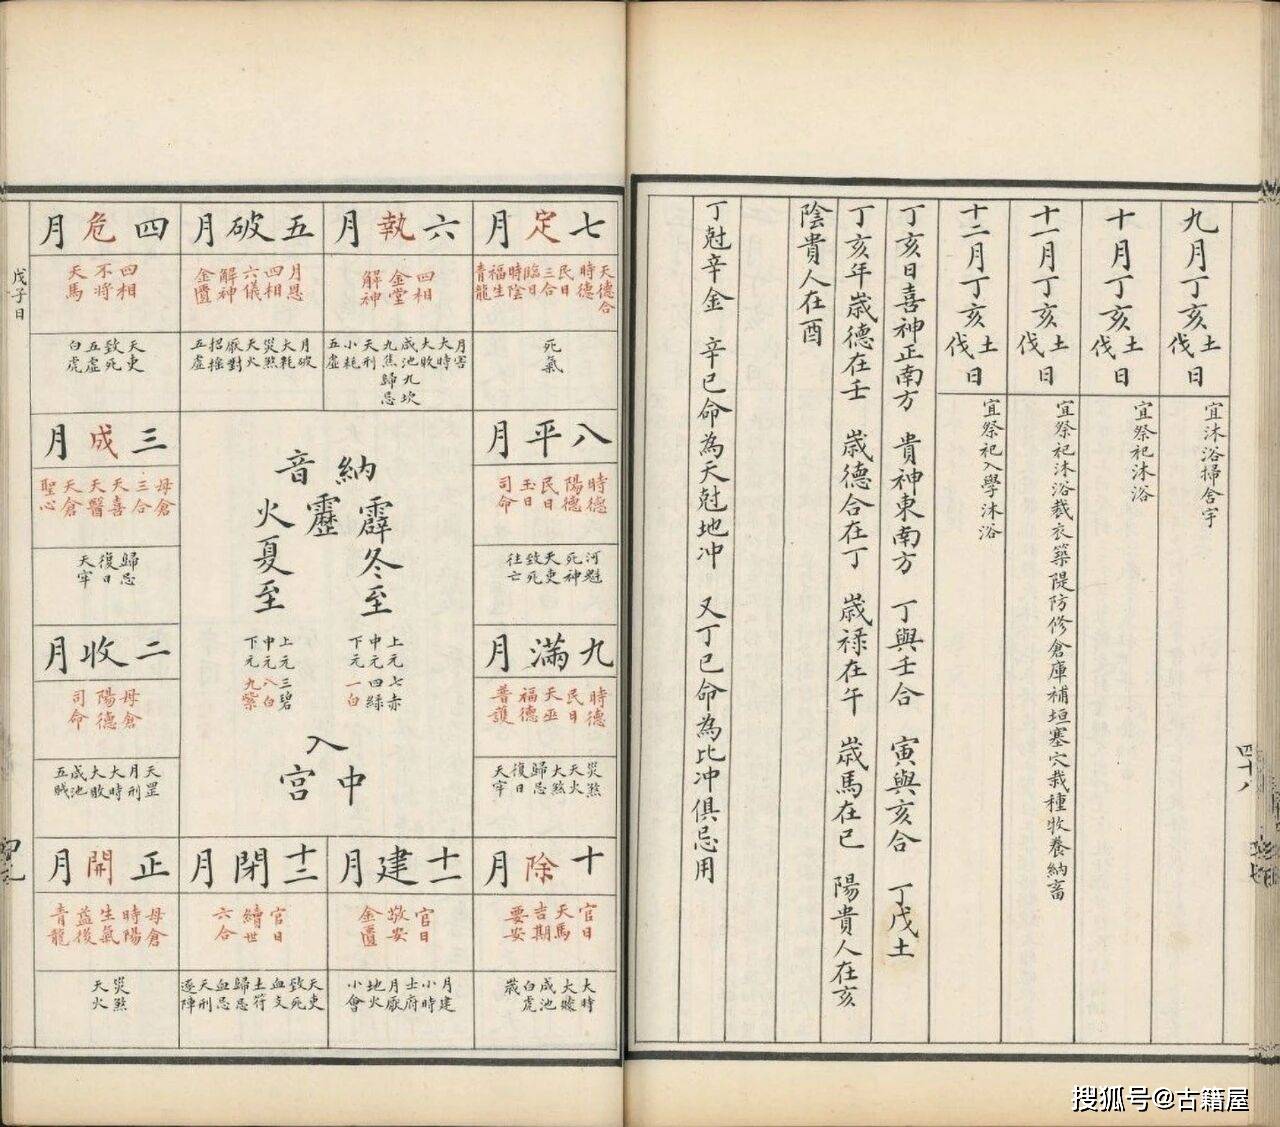 九月丁亥土伐日
宜沐浴掃舍宇
十月丁亥土伐日
宜祭祀沐浴
十一月丁亥土伐日
宜祭祀沐浴裁衣築隄防修倉庫補垣塞穴栽種牧養納畜
十二月丁亥土伐日
宜祭祀入學沐浴
丁亥日喜神正南方 貴神東南方 丁與壬合 寅與亥合 丁戊土
丁亥年歲德在壬 歲德合在丁 歲祿在午 歲馬在巳 陽貴人在亥
陰貴人在酉
丁尅辛金 辛巳命為天尅地冲 又丁巳命為比冲俱忌用
四十八
七定月
天德合
時德
民日
三合
臨日
時陰
福生
青龍
死氣
六執月
四相
金堂
解神
月害
大時
大敗
咸池
九坎
九焦
歸忌
天刑
小耗
五虛
五破月
月恩
四相
六儀
解神
金匱
月破
大耗
災煞
天火
厭對
招搖
五虛
四危月
四相
不將
天馬
天吏
致死
五虛
白虎
戊子日
八平月
時德
陽德
民日
玉日
司命
河魁
死神
天吏
致死
往亡
三成月
母倉
三合
天喜
天醫
天倉
聖心
歸忌
復日
天牢
納音
霹靂火
冬至
夏至
上元七赤
中元四綠
下元一白
上元三碧
中元八白
下元九紫
入中宮
九滿月
時德
民日
天巫
福德
普護
災煞
天火
大煞
歸忌
復日
天牢
二收月
母倉
陽德
司命
天罡
月刑
大時
大敗
咸池
五賊
十除月
官日
天馬
吉期
要安
大時
大敗
咸池
白虎
歲
十一建月
官日
敬安
金匱
月建
小時
土府
月厭
地火
小會
十二閉月
官日
續世
六合
天吏
致死
血支
土符
歸忌
血忌
天刑
逐陣
正開月
母倉
時陽
生氣
益後
青龍
災煞
天火
搜狐号@古籍屋